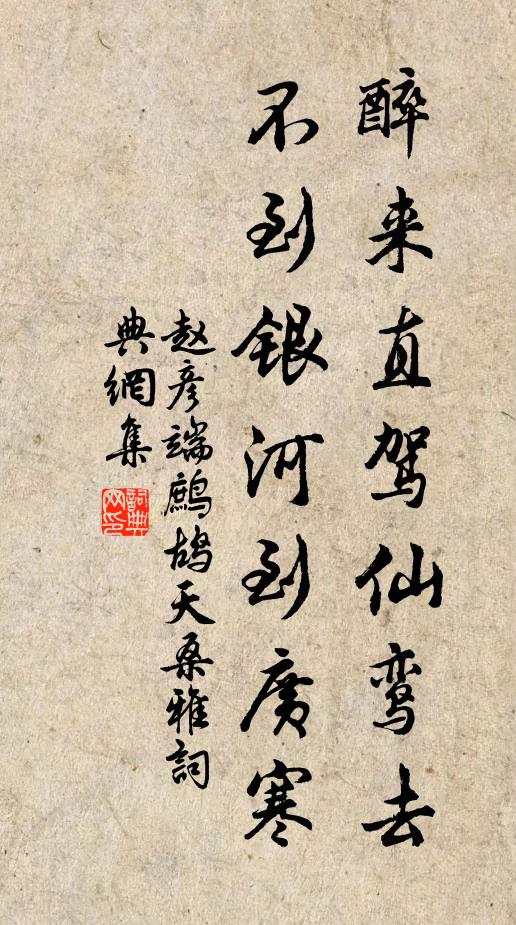 醉来直驾仙鸾去
不到银河到廣寒
赵彦端鷓鸪天桑雅詞
典網集
詞典網印